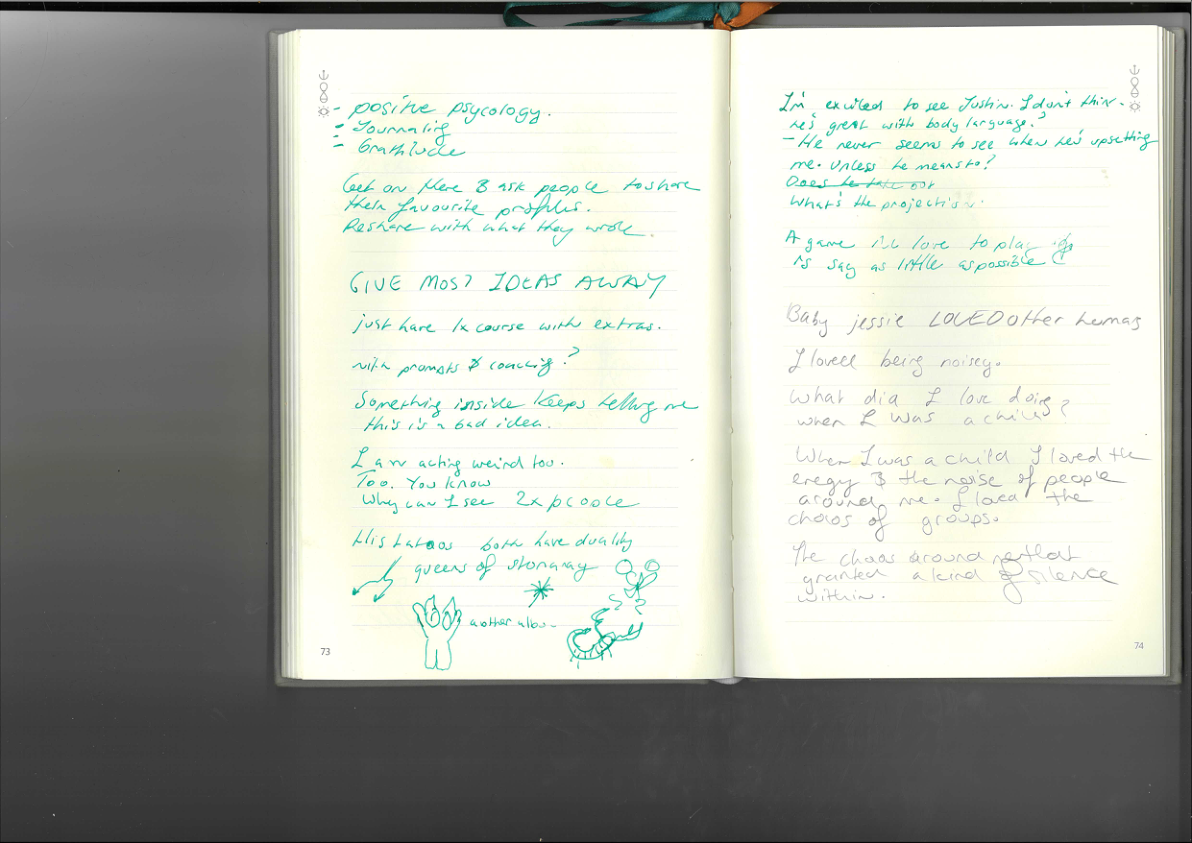 - positive psycology.
- Journaling
- Gratitude
Get on there & ask people to share
their favourite profiles.
Reshare with what they wrote.
GIVE MOST IDEAS AWAY
just have 1x course with extras.
with prompts & coaching?
Something inside keeps telling me
this is a bad idea.
I am acting weird too.
Too. You know
Why can I see 2x people
His tatoos both have duality
queens of stonaray
another album
73
I'm excited to see Justin. I don't think
he's great with body language?
- He never seems to see when he's upsetting
me. Unless he means to?
Does he take out
What's the projection.
A game I'll love to play
is say as little as possible
Baby jessie LOVED other humans
I loved being noisey.
What did I love doing
when I was a child?
When I was a child I loved the
enegy & the noise of people
around me. I loved the
chaos of groups.
The chaos around
granted a kind of silence
within.
74